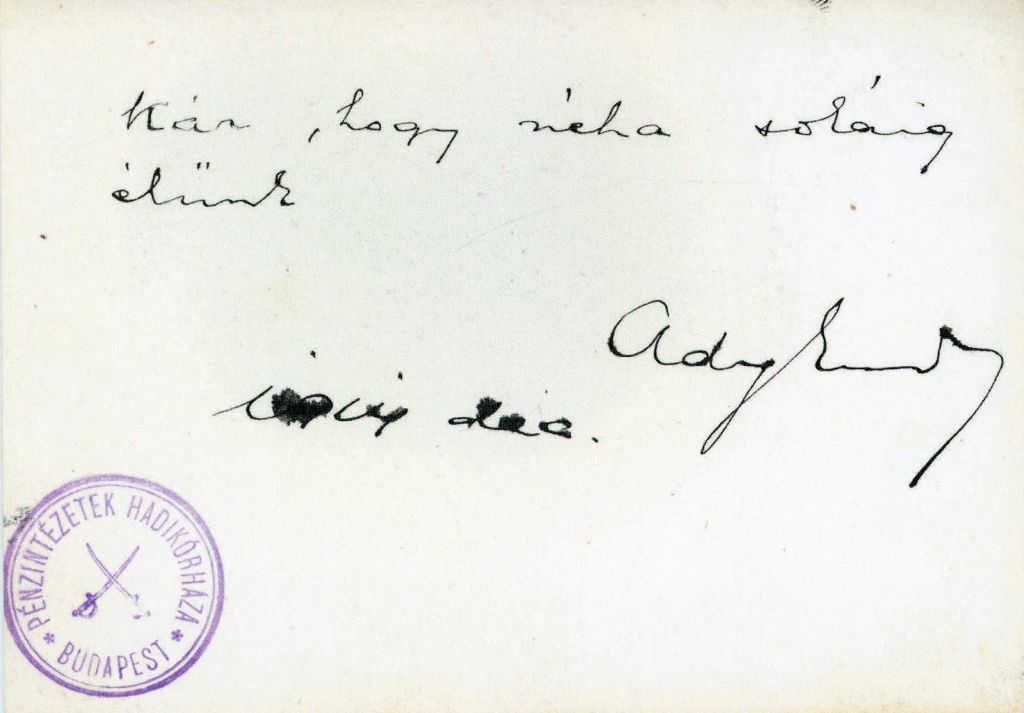 Kár, hogy néha sokáig
élünk
Ady Endre
dec.
* PÉNZINTÉZETEK HADIKÓRHÁZA *
BUDAPEST